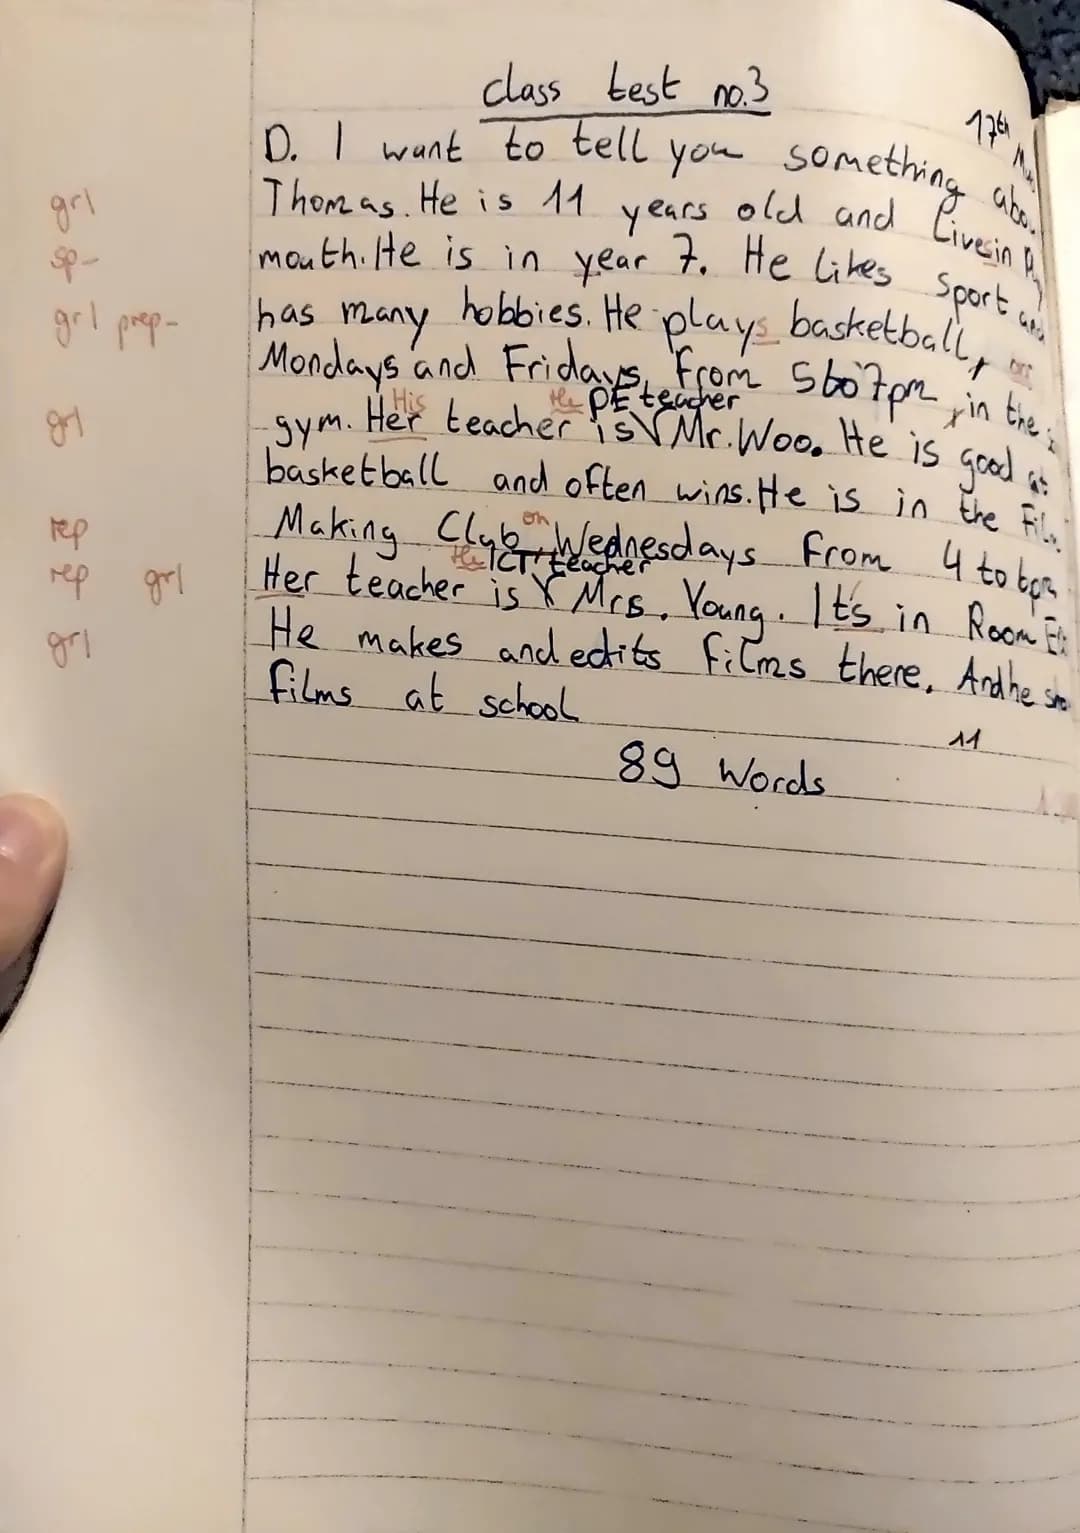 class test no.3
17th
D. I want to tell you something
grl Thomas. He is 11 years old and Livesin
sp- mouth. He is in year 7. He likes sport and
grl prep- has many hobbies. He plays basketball, on
Mondays and Fridays, From 5to7pm, in the
His the PE teacher
grl gym. Her teacher is Mr. Woo. He is good at
basketball and often wins. He is in the
on
rep Making Club, Wednesdays from 4 to 6pm
the ICT teacher
rep grl Her teacher is Mrs. Young. It's in Room
grl He makes and edits films there, And he
films at school
11
89 Words